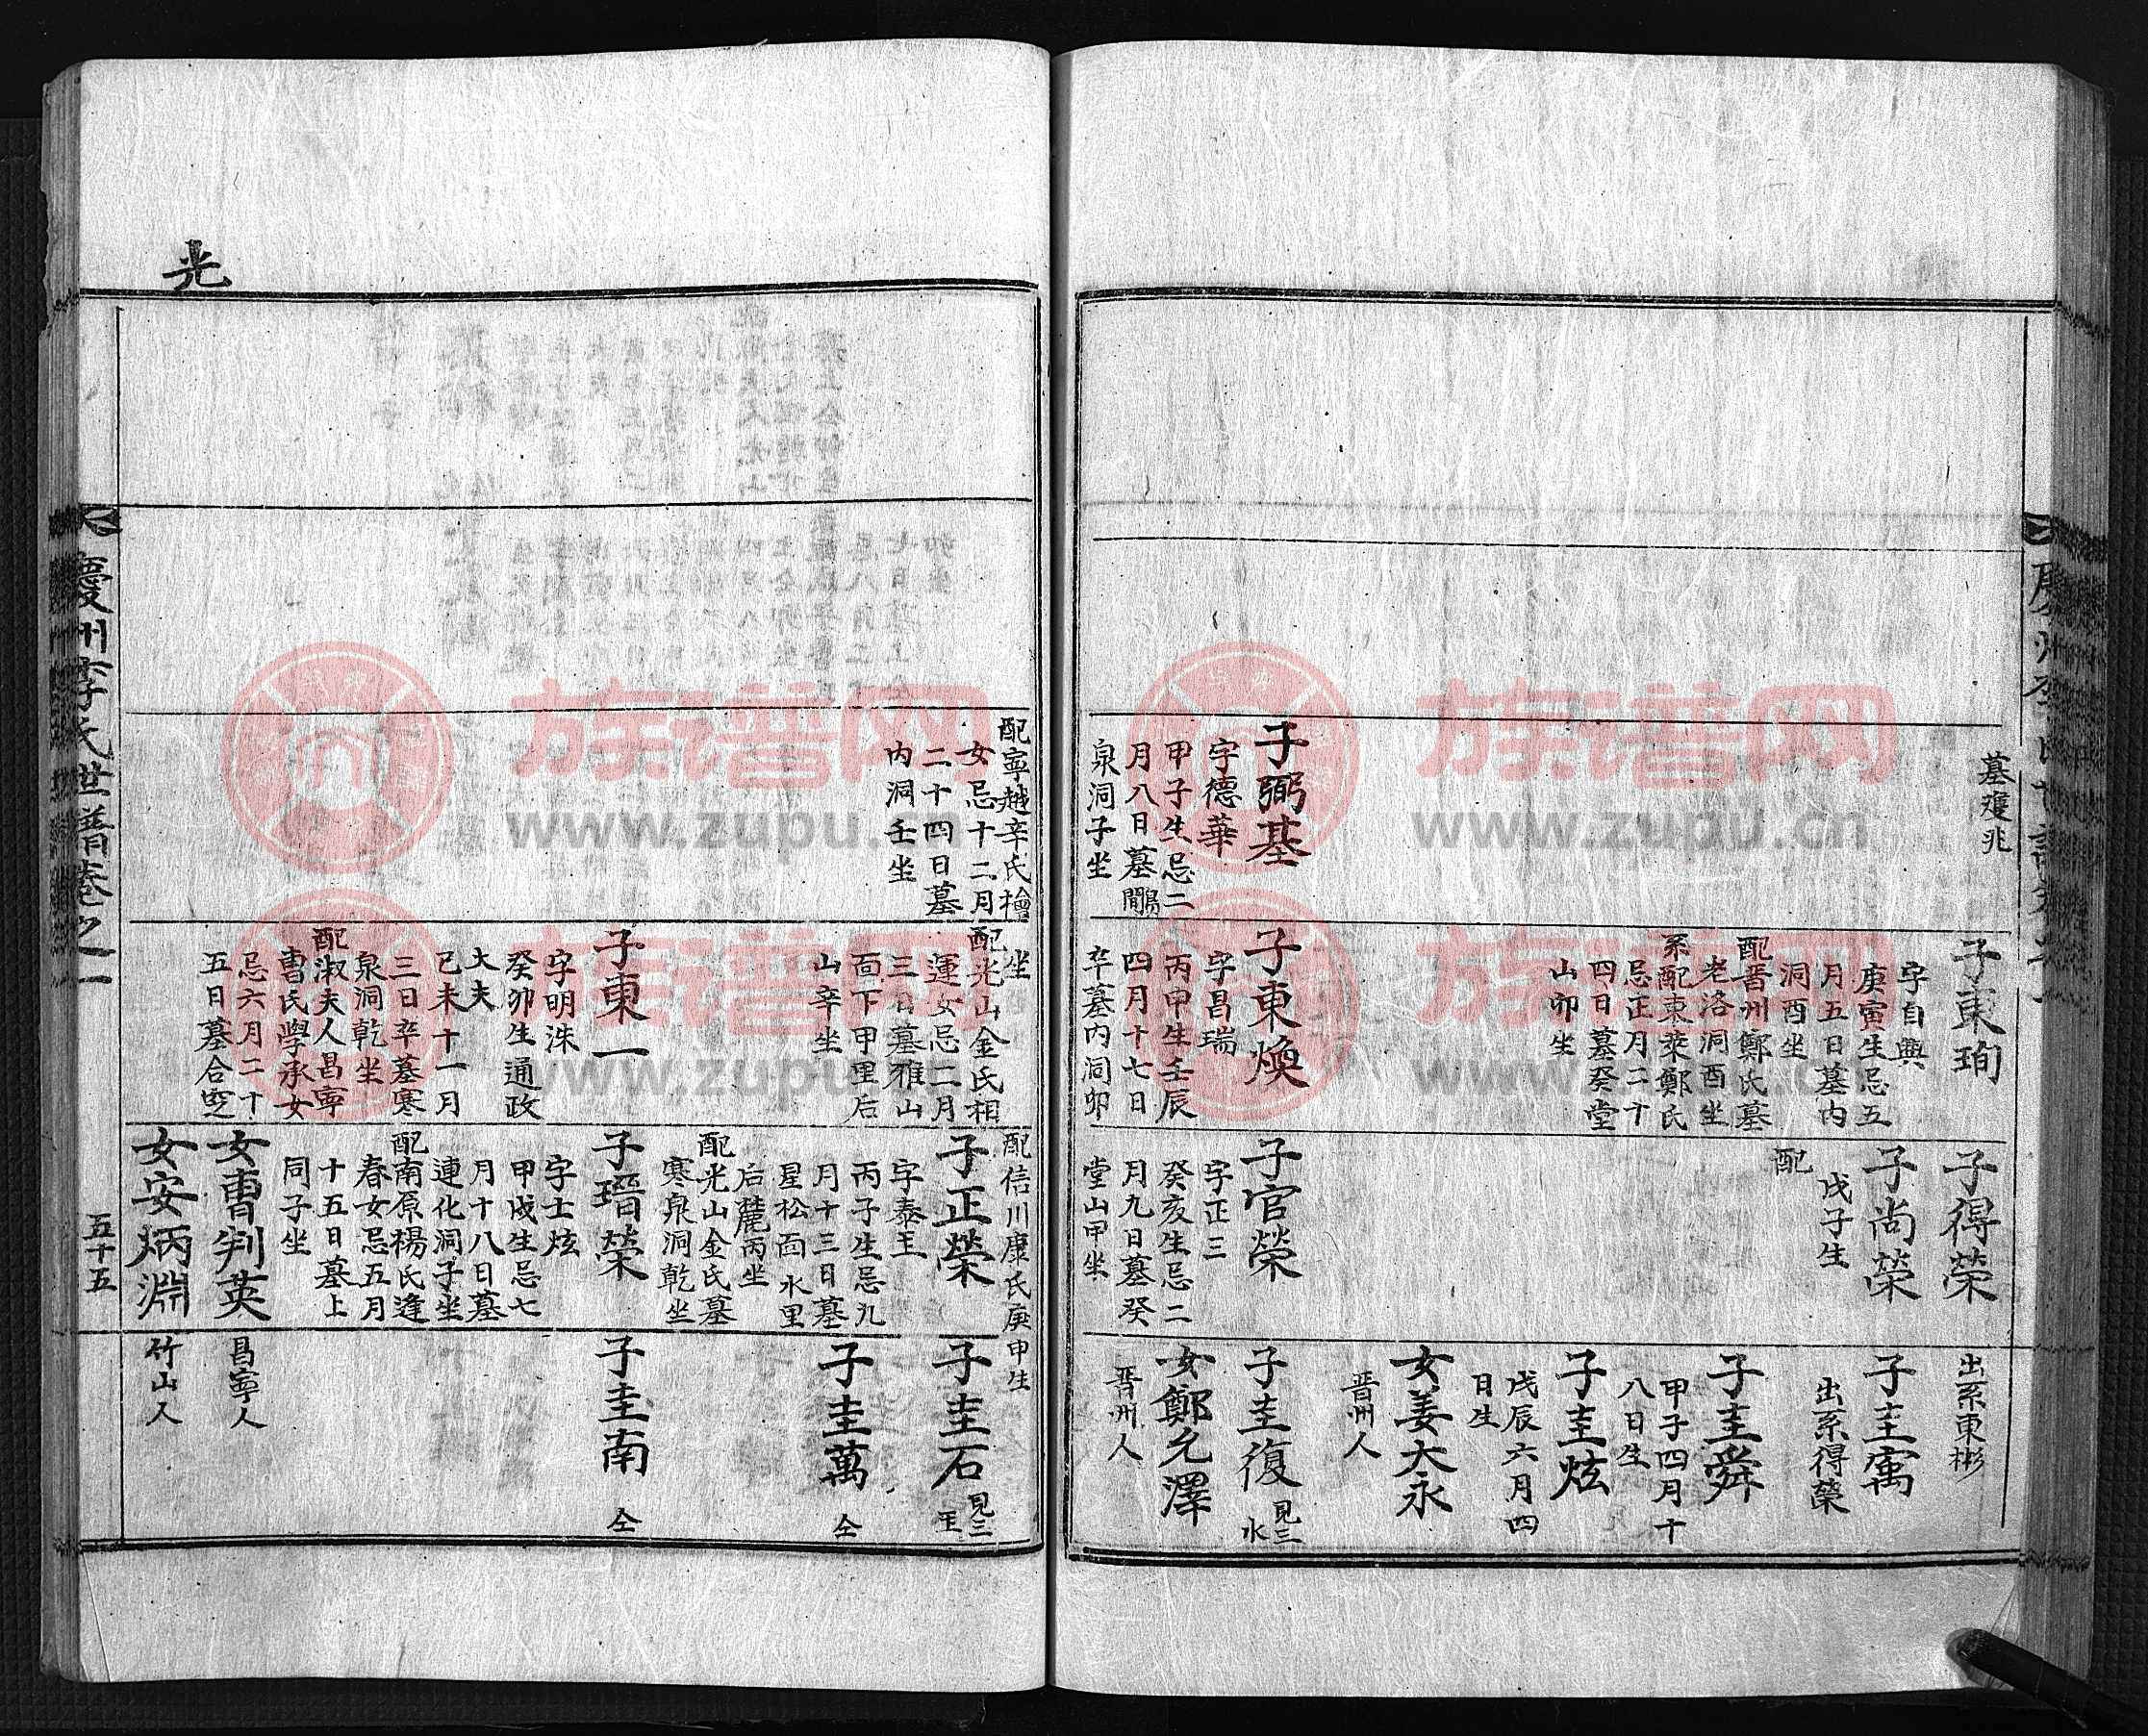 墓瘦兆
子弼基
字德華
甲子生忌二
月八日墓鵬
泉洞子坐
子東珣
字自興
庚寅生忌五
月五日墓内
洞酉坐
配晋州鄭氏墓
老洛洞酉坐
系配東萊鄭氏
忌正月二十
四日墓癸堂
山卯坐
子東煥
字昌瑞
丙申生壬辰
四月十七日
卒墓内洞卯
子得榮
子尚榮
戊子生
配
子官榮
字正三
癸亥生忌二
月九日墓癸
堂山甲坐
出系東彬
子圭寓
出系得榮
子圭舜
甲子四月十
八日生
子圭炫
戊辰六月四
日生
女姜大永
晋州人
子圭復
見三
水
女鄭允澤
晋州人
光
配寧越辛氏檜
女忌十二月
二十四日墓
内洞壬坐
坐
配光山金氏相
運女忌二月
三日墓雅山
面下甲里后
山辛坐
子東一
字明洙
癸卯生通政
大夫
己未十一月
三日卒墓寒
泉洞乾坐
配淑夫人昌寧
曺氏學承女
忌六月二十
五日墓合窆
配信川康氏庚申生
子正榮
字泰王
丙子生忌九
月十三日墓
星松面水里
后麓丙坐
配光山金氏墓
寒泉洞乾坐
子瑨榮
字士炫
甲戌生忌七
月十八日墓
連化洞子坐
配南原楊氏逢
春女忌五月
十五日墓上
同子坐
女曺判英
女安炳淵
子圭石
見三
王
子圭萬
仝
子圭南
仝
昌寧人
竹山人
慶州李氏世譜卷之一
五十五
族谱网
www.zupu.cn
族谱网
www.zupu.cn
族谱网
www.zupu.cn
族谱网
www.zupu.cn